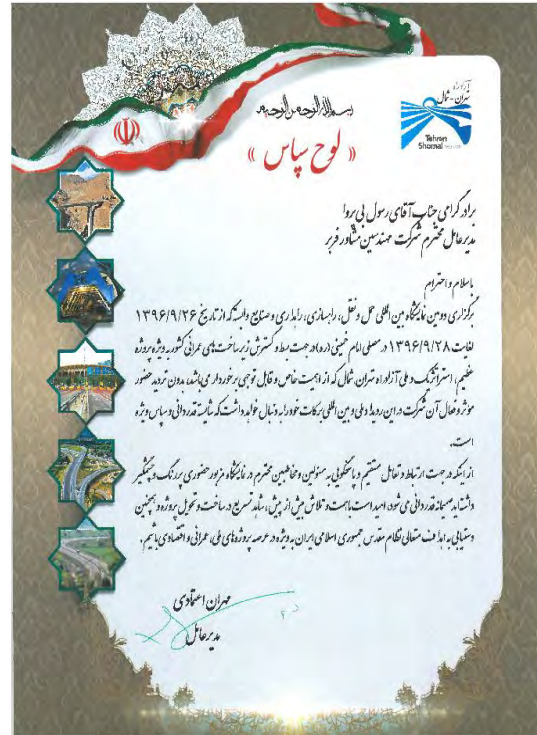 آزادراه
تهران - شمال
Tehran
Shomal
بسم الله الرحمن الرحیم
« لوح سپاس »
برادر گرامی جناب آقای رسول بی پروا
مدیرعامل محترم شرکت مهندسین مشاور فربر
باسلام و احترام
برگزاری دومین نمایشگاه بین المللی حمل و نقل، راهسازی، راهداری و صنایع وابسته که از تاریخ ۱۳۹۶/۹/۲۶
لغایت ۱۳۹۶/۹/۲۸ در مصلی امام خمینی (ره) در جهت بسط و گسترش زیرساخت های عمرانی کشور به ویژه پروژه
عظیم، استراتژیک و ملی آزادراه تهران شمال که از اهمیت خاص و قابل توجهی برخوردار می باشد، بدون تردید حضور
موثر و فعال آن شرکت در این رویداد ملی و بین المللی برکات خود را به دنبال خواهد داشت که شایسته قدردانی و سپاس ویژه
است.
از اینکه در جهت ارتباط و تعامل مستقیم و پاسخگویی به مسئولین و مخاطبین محترم در نمایشگاه مزبور حضوری پررنگ و چشمگیر
داشته اید صمیمانه قدردانی می شود، امید است با همت و تلاش بیش از پیش، شاهد تسریع در ساخت و تحویل پروژه و همچنین
دستیابی به اهداف متعالی نظام مقدس جمهوری اسلامی ایران به ویژه در عرصه پروژه های ملی، عمرانی و اقتصادی باشیم.
مهران اعتمادی
مدیرعامل